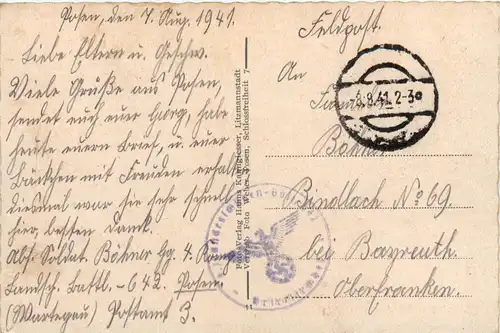 Posen, den 7. Aug. 1941.
Liebe Eltern u. Geschw.
Viele Grüße aus Posen,
sendet euch euer Georg, habe
heute euern Brief, u. euer
Päckchen mit Freuden erhalten
diesmal war sie sehr schnell
hier, besten Dank.
Abs. Soldat Böhner Gg. 4. Komp.
Landsch. Battl. - 642. Posen.
(Wartegau) Postamt 3.
Foto-Verlag Hanns Kanngiesser, Litzmannstadt
Vertrieb: Foto Posen, Schlossfreiheit 7
Feldpost.
An
8.8.41.2-30
Familie
Böhner
Bindlach No 69.
bei Bayreuth
Oberfranken.